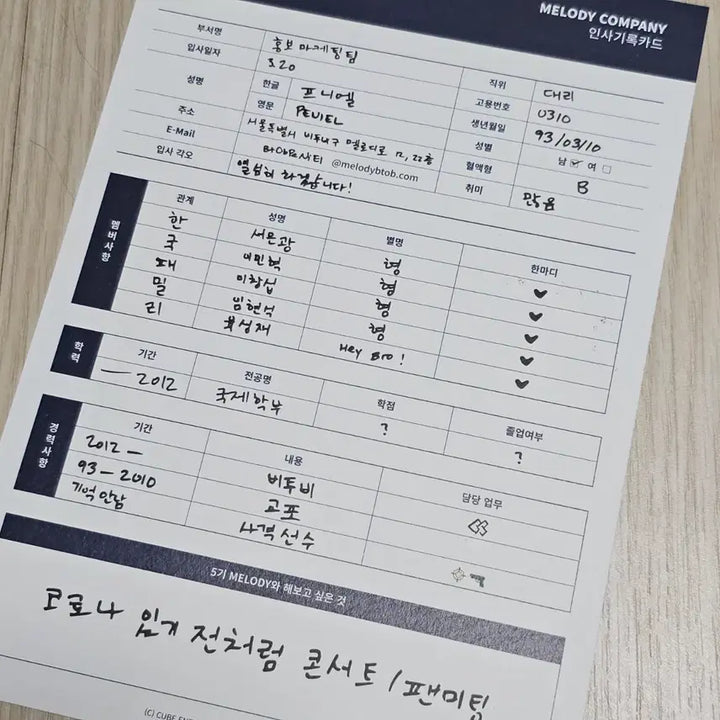 MELODY COMPANY
인사기록카드
부서명 홍보마케팅팀 직위 대리
입사일자 3.20 고용번호 0310
성명 한글 프니엘 생년월일 93/03/10
영문 PENIEL 성별 남 여
주소 서울특별시 비투비구 멜로디로 12, 22층 혈액형 B
E-Mail @melodybtob.com 취미 많음
입사 각오 열심히 하겠습니다!
멤버사항
관계 성명 별명 한마디
한 서은광 형 ♥
국 이민혁 형 ♥
패 이창섭 형 ♥
밀 임현식 형 ♥
리 육성재 Hey Bro! ♥
학력
기간 전공명 학점 졸업여부
— 2012 국제학부 ? ?
경력사항
기간 내용 담당 업무
2012 — 비투비
93 — 2010 교포
기억안남 사격선수
5기 MELODY와 해보고 싶은 것
코로나 있기 전처럼 콘서트 / 팬미팅
(C) CUBE